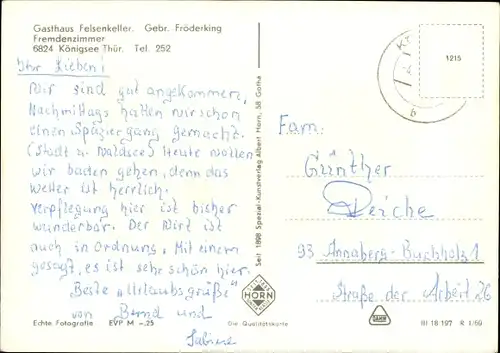 Gasthaus Felsenkeller. Gebr. Fröderking
Fremdenzimmer
6824 Königsee Thür. Tel. 252
Ihr Lieben!
Wir sind gut angekommen,
Nachmittags hatten wir schon
einen Spaziergang gemacht.
(Stadt u. Waldsee) Heute wollen
wir baden gehen, denn das
Wetter ist herrlich.
Verpflegung hier ist bisher
wunderbar. Der Wirt ist
auch in Ordnung. Mit einem
gesagt, es ist sehr schön hier.
Beste "Urlaubsgrüße"
von Bernd und
Sabine
Echte Fotografie EVP M -.25
Seit 1898 Spezial-Kunstverlag Albert Horn, 58 Gotha
HORN
Die Qualitätskarte
1215
b
Fam.
Günther
Reiche
93 Annaberg-Buchholz 1
Straße der Arbeit 26
III 18 197 R 1/69